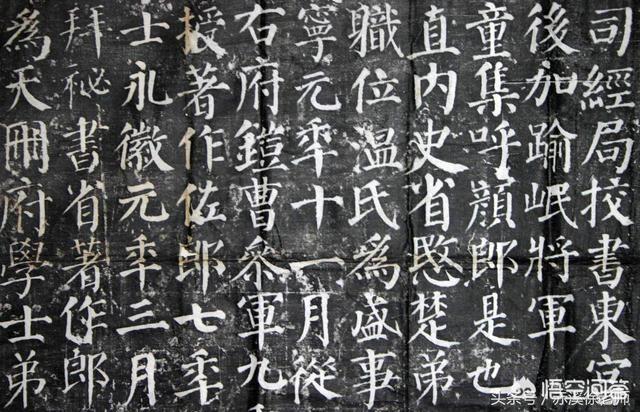 司經局校書東宮
後加踰岷將軍
童集呼顏郎是也
直內史省愍楚弟
職位温氏為盛事
寧元年十一月從
右府鎧曹參軍九
授著作佐郎七年
士永徽元年三月
拜祕書省著作郎
為天冊府學士弟
悟空问答
头条号 /